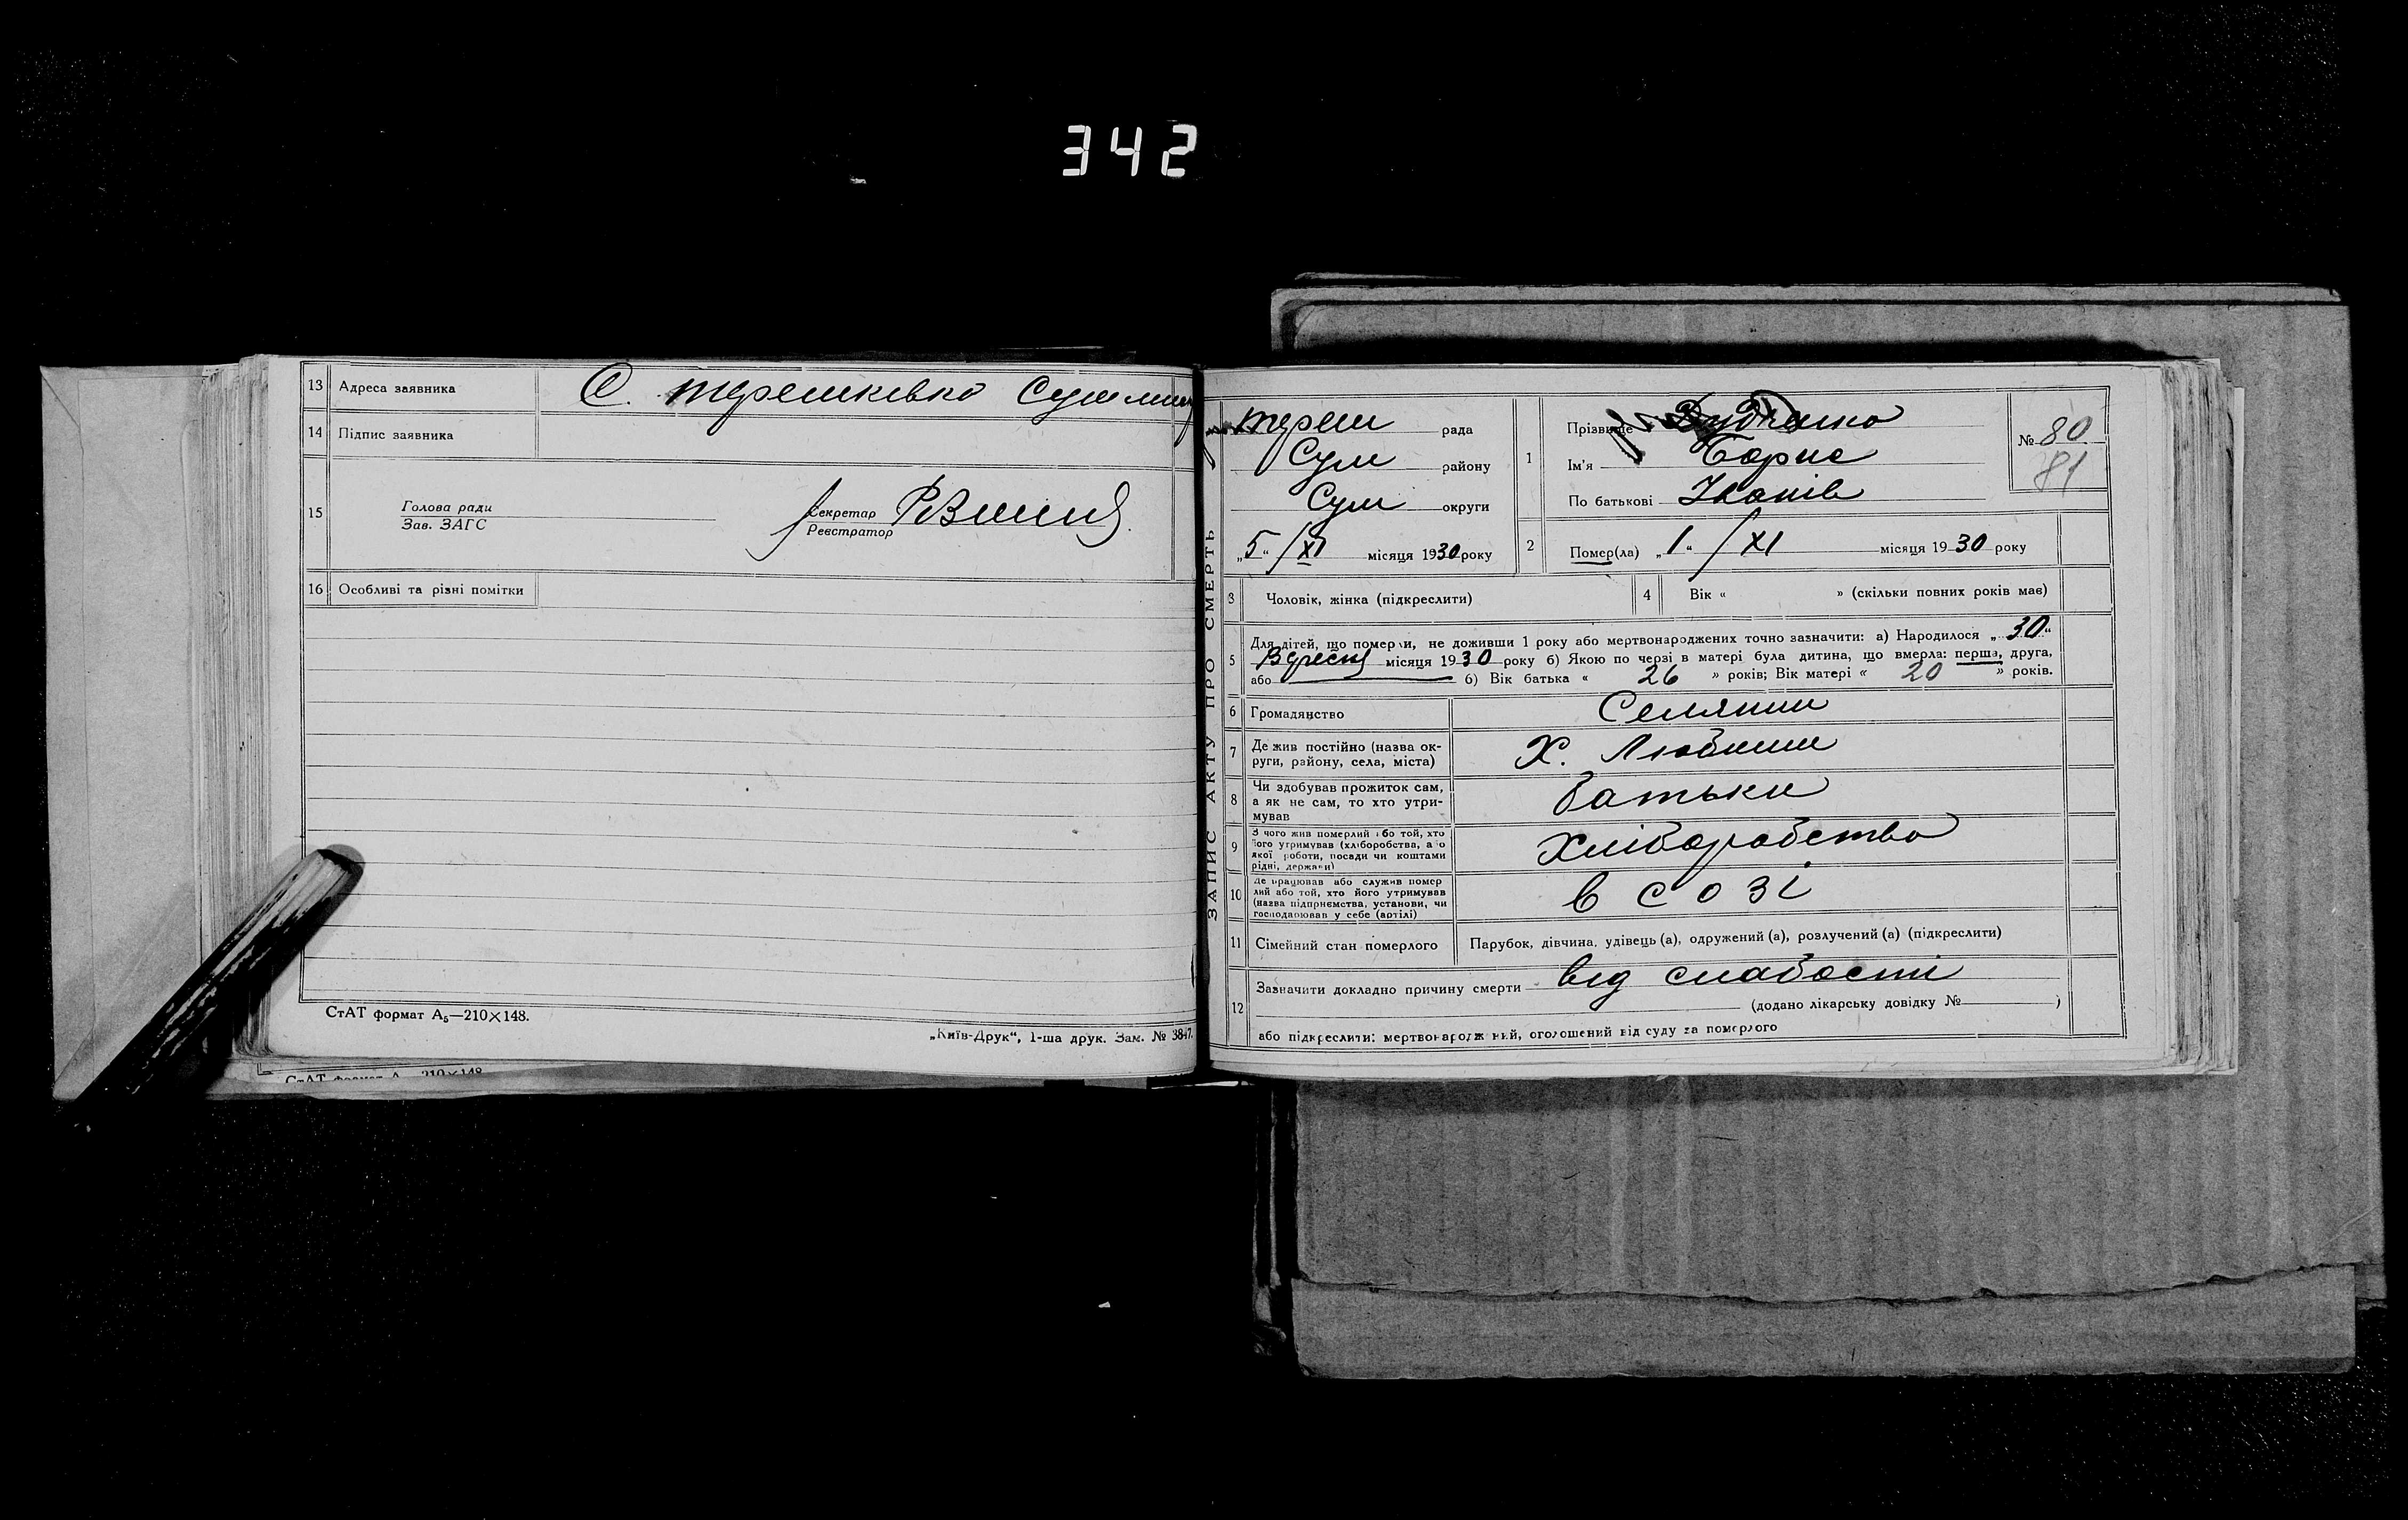 342
13 Адреса заявника С. терешківка Сумськ
14 Підпис заявника
15 Голова ради
Зав. ЗАГС
Секретар
Реєстратор
16 Особливі та різні помітки
СтАТ формат А₅—210×148.
„Київ-Друк“, 1-ша друк. Зам. № 3847.
СтАТ формат А 210×148
ЗАПИС АКТУ ПРО СМЕРТЬ
тереш рада
Сум району
Сум округи
„5“ /XI місяця 1930 року
1 Прізвище
Ім'я Борис
По батькові Іванів
№ 80
81
2 Помер(ла) „1“ /XI місяця 1930 року
3 Чоловік, жінка (підкреслити)
4 Вік « » (скільки повних років має)
5 Для дітей, що померли, не доживши 1 року або мертвонароджених точно зазначити: а) Народилося „30“
Вересня місяця 1930 року б) Якою по черзі в матері була дитина, що вмерла: перша, друга,
або б) Вік батька « 26 » років; Вік матері « 20 » років.
6 Громадянство Селянин
7 Де жив постійно (назва округи, району, села, міста) Х.
8 Чи здобував прожиток сам, а як не сам, то хто утримував батьки
9 З чого жив померлий або той, хто його утримував (хліборобства, або якої роботи, посади чи коштами рідні, держави) Хліборобство
10 Де працював або служив помер лий або той, хто його утримував (назва підприємства, установи, чи господарював у себе (артілі) в созі
11 Сімейний стан померлого Парубок, дівчина, удівець (а), одружений (а), розлучений (а) (підкреслити)
12 Зазначити докладно причину смерти від слабості
(додано лікарську довідку № )
або підкреслити: мертвонароджений, оголошений від суду за померлого